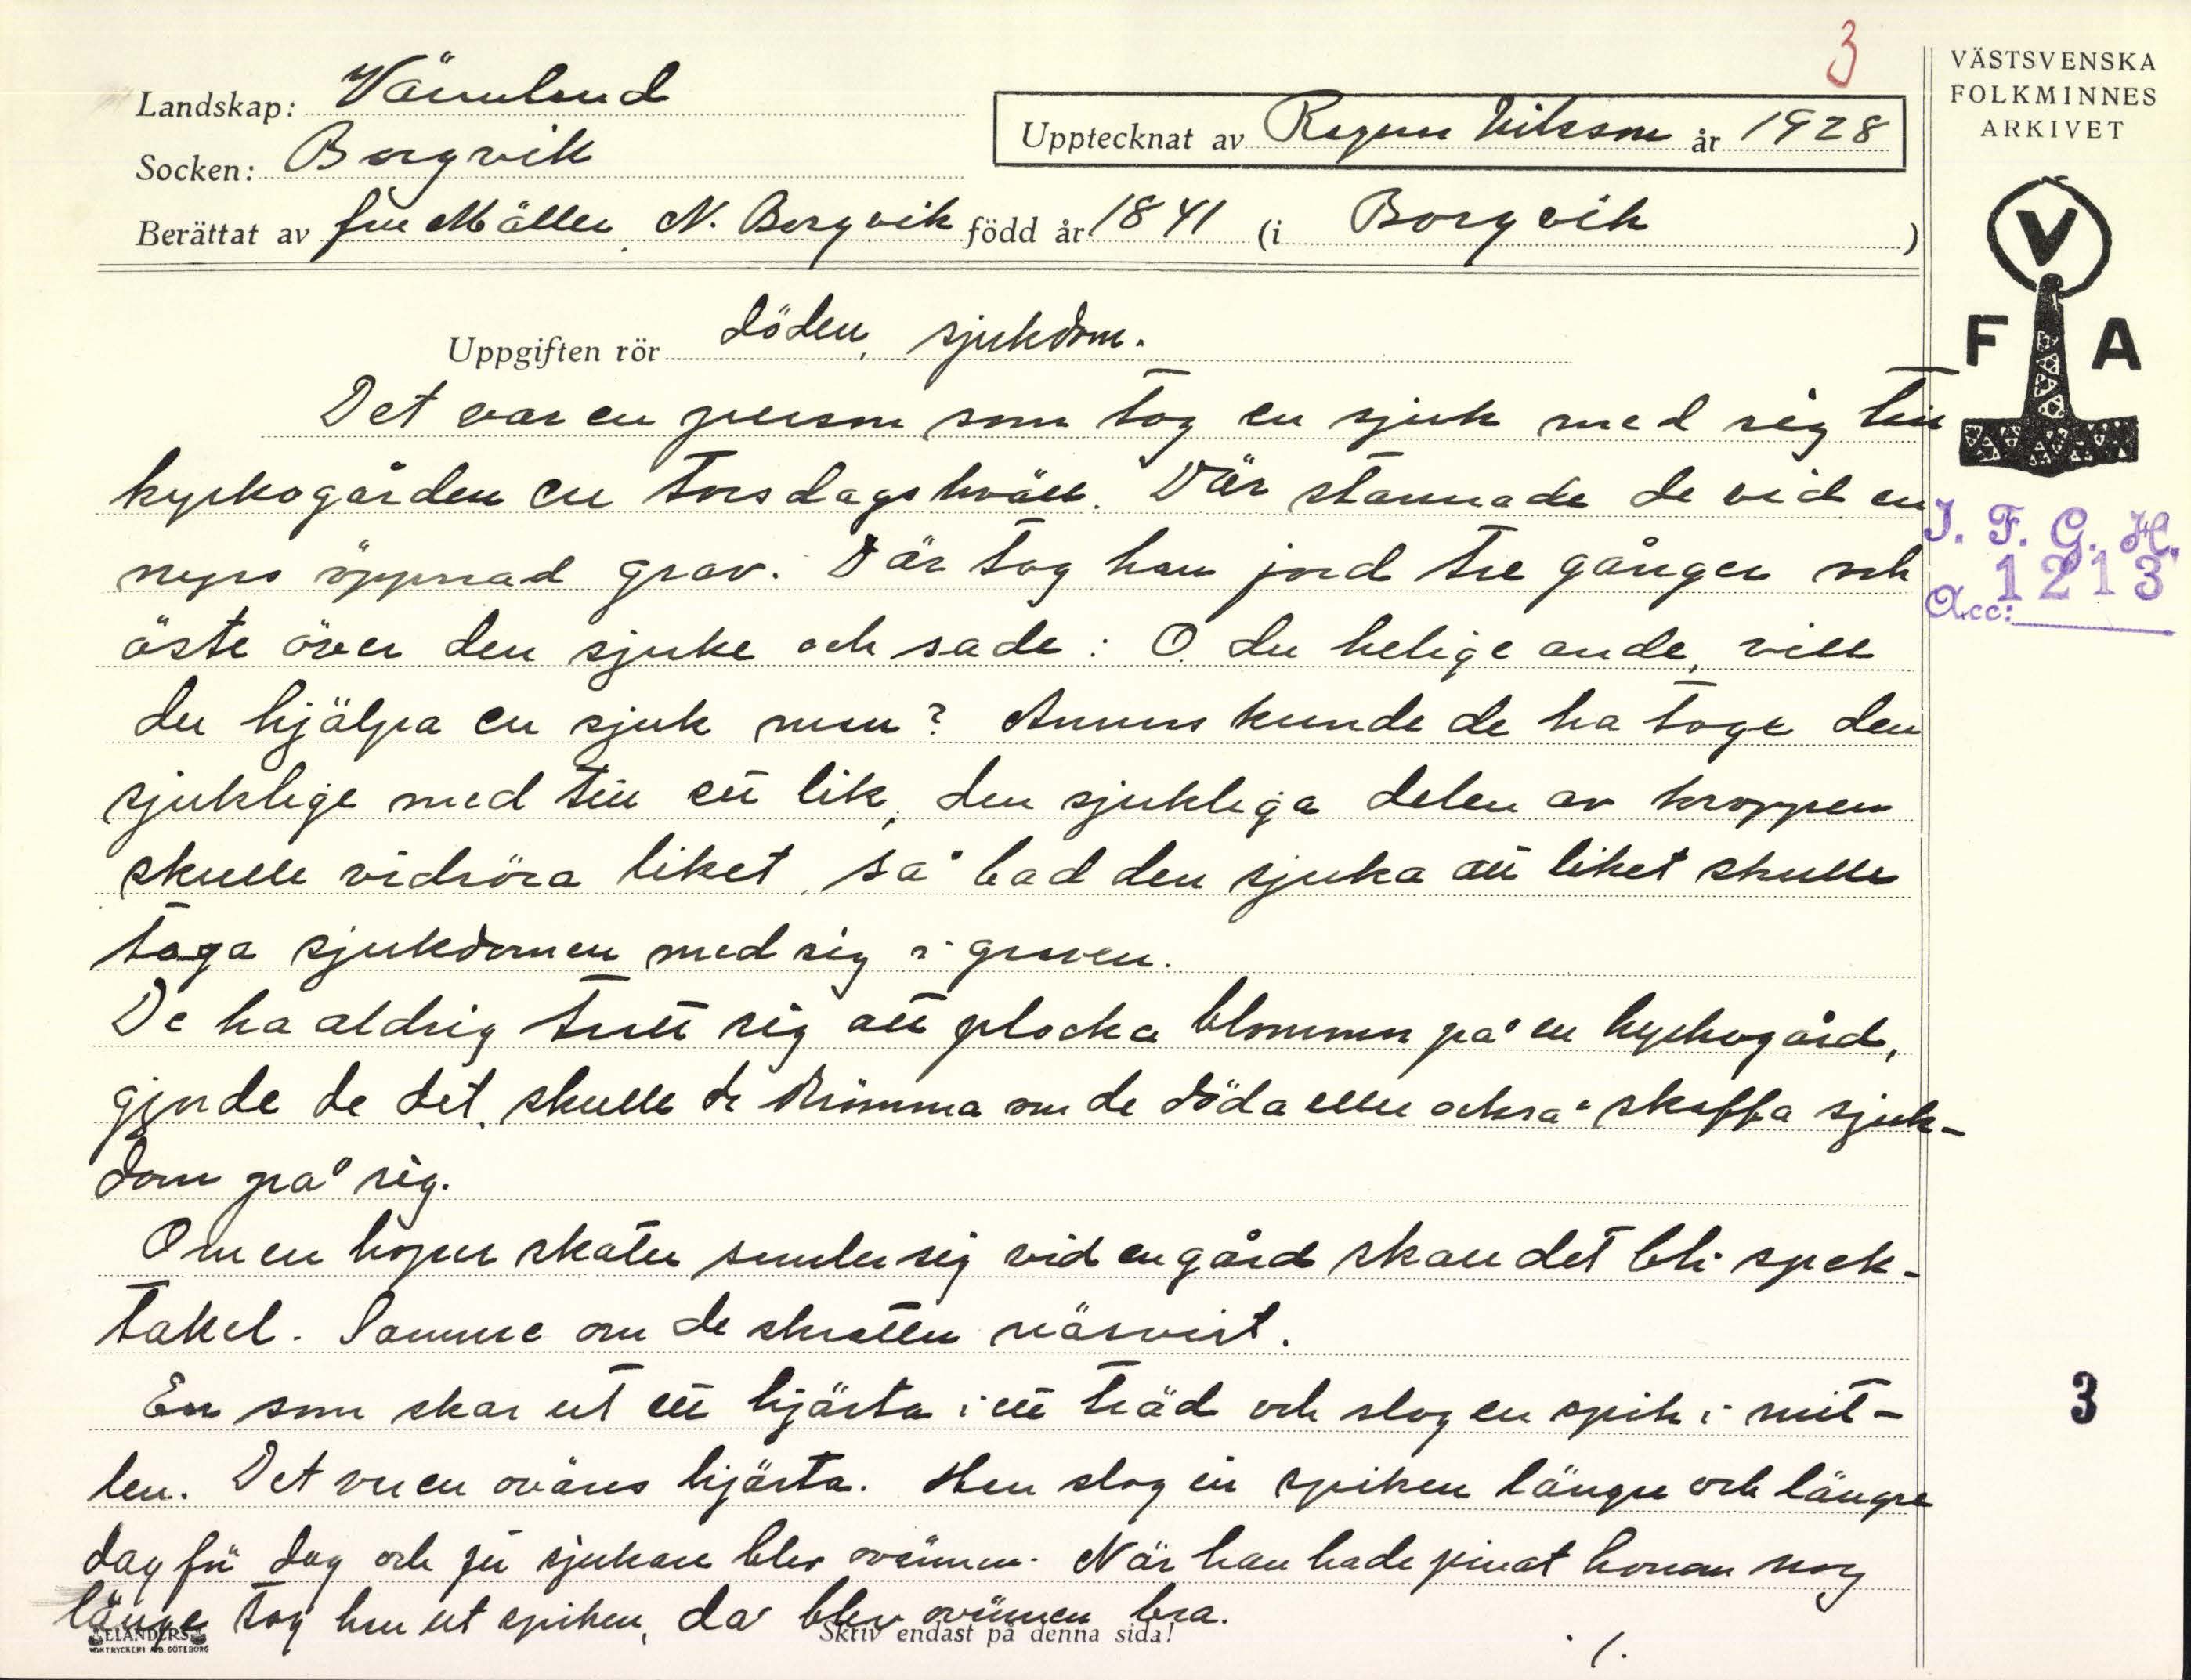 3
VÄSTSVENSKA
FOLKMINNES
ARKIVET
Landskap: Värmland
Socken: Borgvik
Upptecknat av Ragnar Nilsson år 1928
Berättat av fru Möller, N. Borgvik född år 1841 (i Borgvik)
V
F A
Uppgiften rör döden, sjukdom.
Det var en person som tog en sjuk med sig till
kyrkogården en torsdagskväll. Där stannade de vid en
nyss öppnad grav. Där tog han jord tre gånger och
öste över den sjuke och sade: O du helige ande, vill
du hjälpa en sjuk man? Annars kunde de ha toge den
sjuklige med till ett lik, den sjukliga delen av kroppen
skulle vidröra liket, så bad den sjuka att liket skulle
taga sjukdomen med sig i graven.
De ha aldrig trott sig att plocka blommor på en kyrkogård,
gjorde de det, skulle de drömma om de döda eller också skaffa sjuk-
dom på sig.
Om en hoper skater samlar sig vid en gård skall det bli spek-
takel. Samme om de skratta näsvist.
En som skar ut ett hjärta i ett träd och slog en spik i mit-
ten. Det var en oväns hjärta. Han slog in spiken längre och längre
dag för dag och ju sjukare blev ovännen. När han hade pinat honom nog
länge tog han ut spiken, då blev ovännen bra.
I. F. G. H.
Acc: 1213
3
ELANDERS
BOKTRYCKERI A.B. GÖTEBORG
Skriv endast på denna sida!